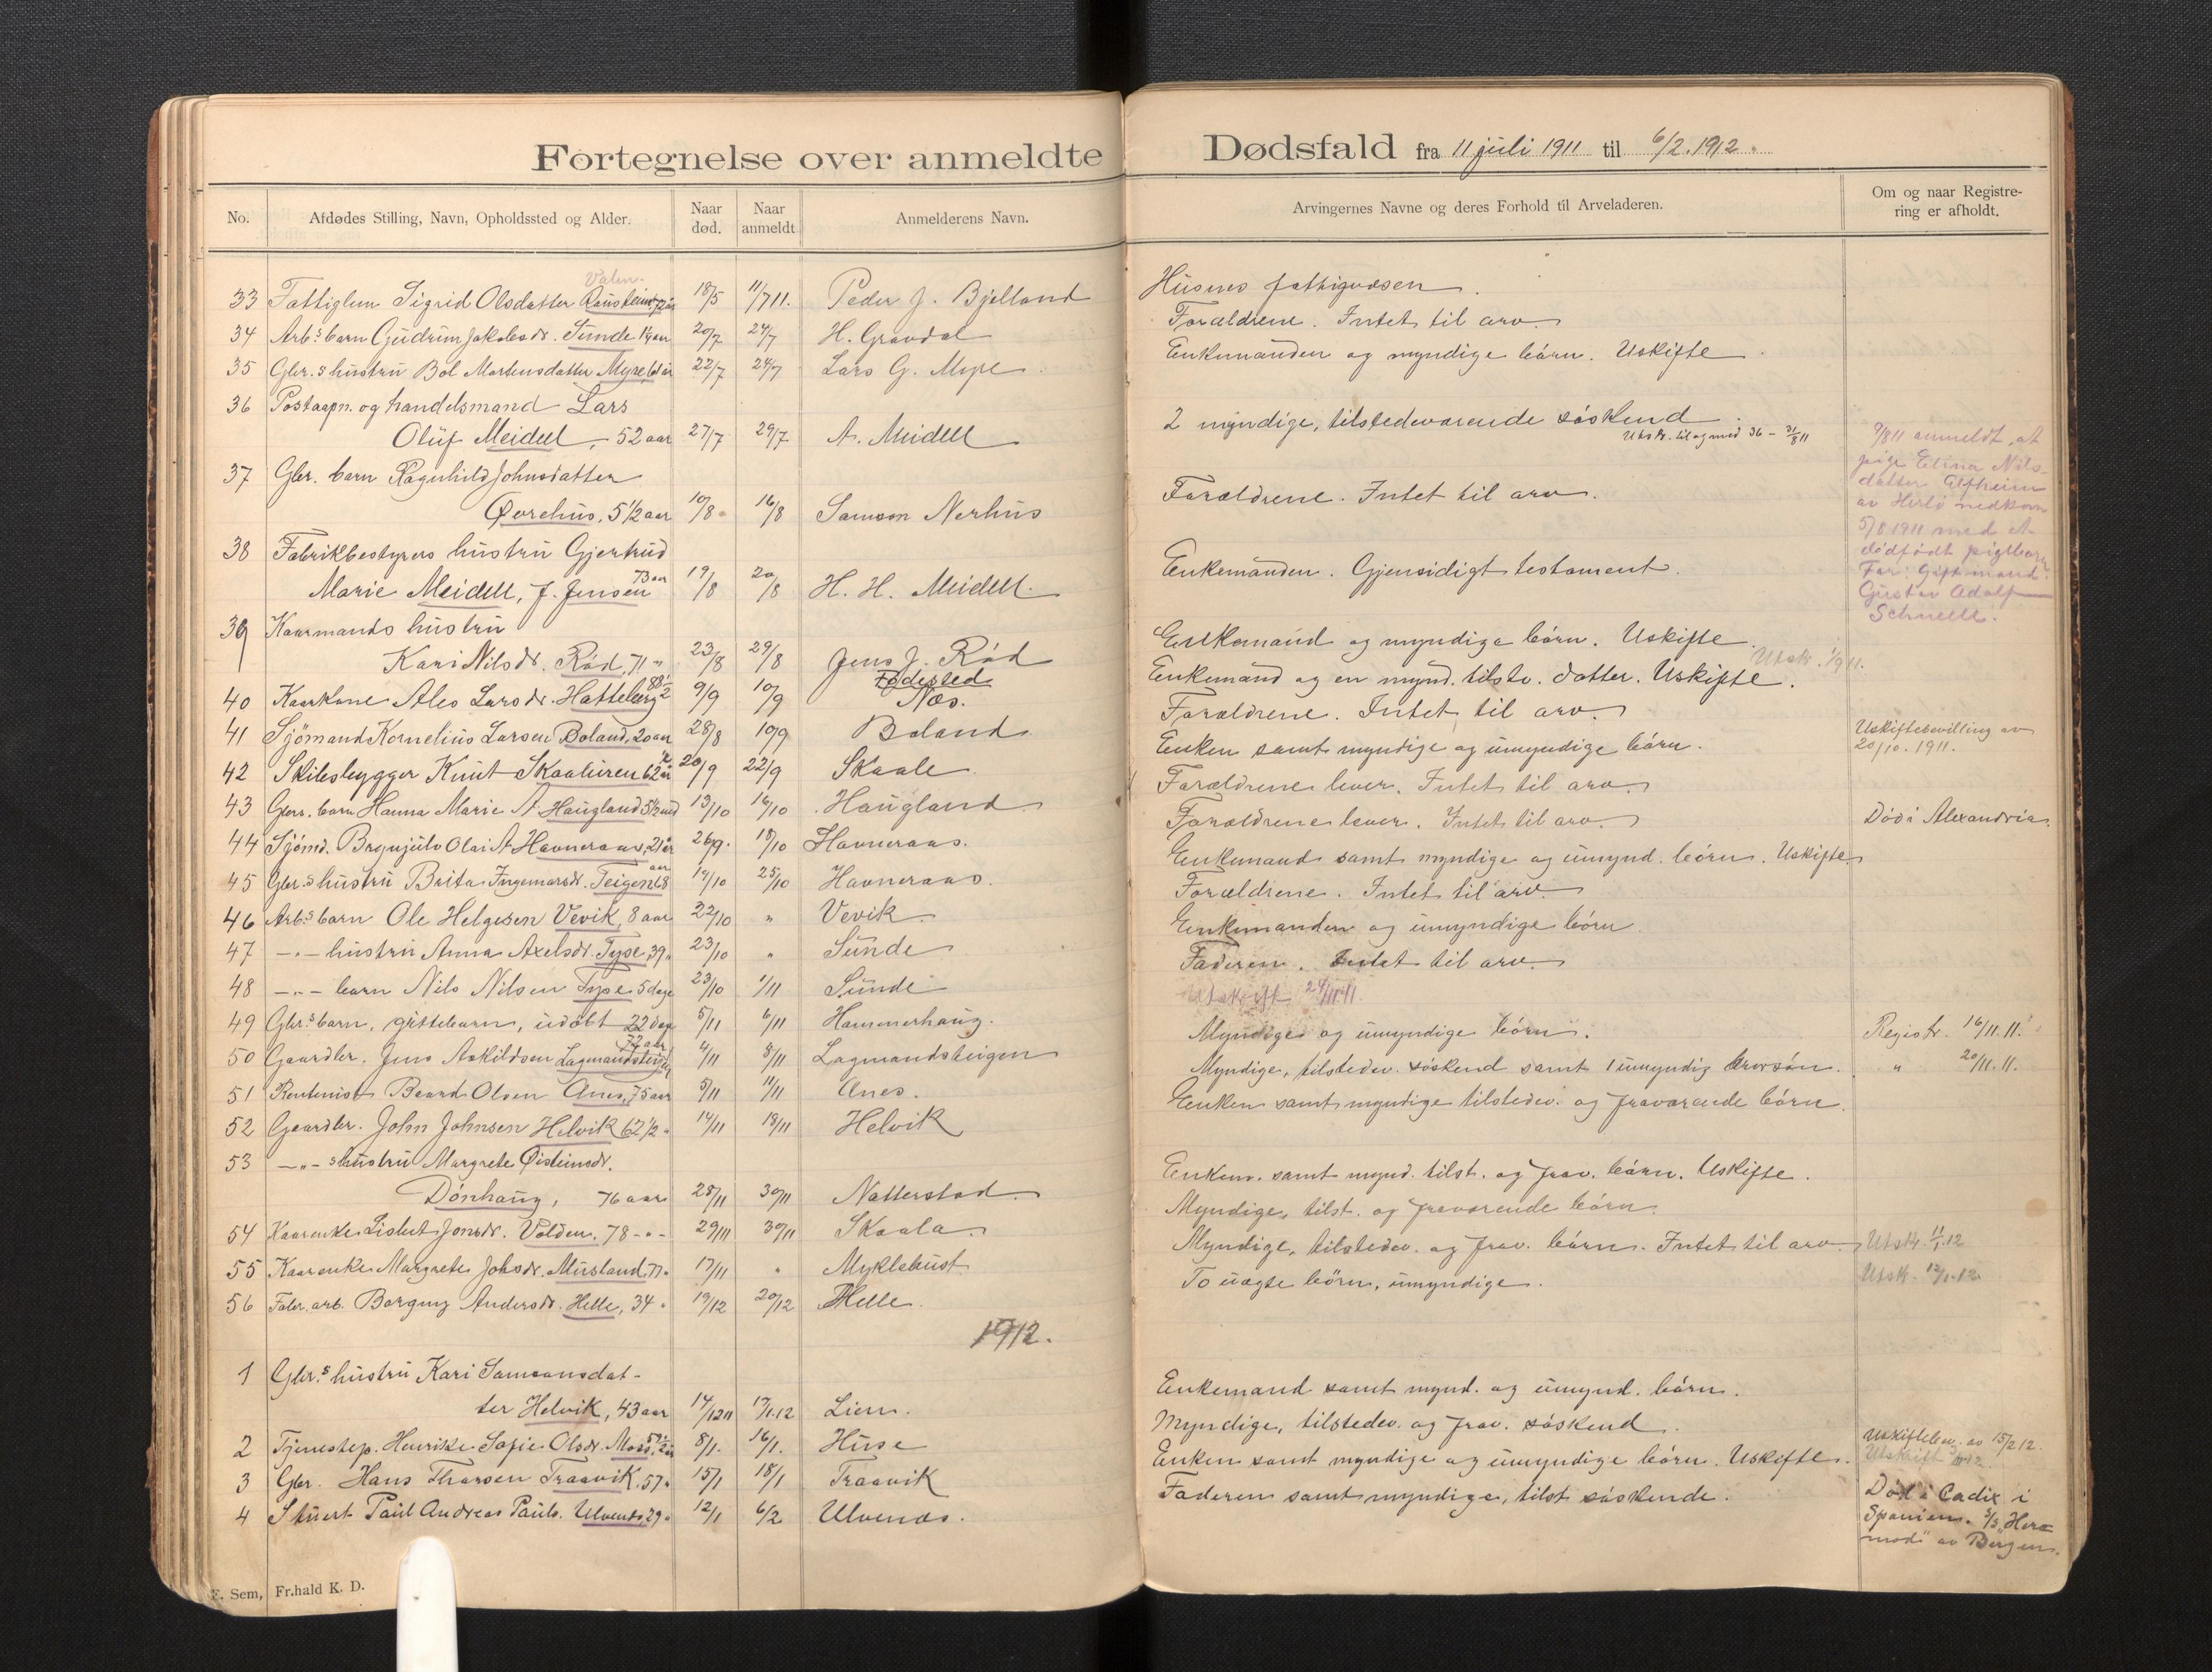 Fortegnelse over anmeldte Dødsfald fra 11 juli 1911 til 6/2.1912.
No. Afdødes Stilling, Navn, Opholdssted og Alder. Naar død. Naar anmeldt Anmelderens Navn. Arvingernes Navne og deres Forhold til Arveladeren. Om og naar Registrering er afholdt.
Valen
33 Fattiglem Sigrid Olsdatter 18/5 11/7 11. Peder J. Bjelland Husnes fattigvæsen.
34 Arb.s barn Gudrun Jakobsdr. Sunde 20/7 24/7 H. Gravdal Forældrene. Intet til arv.
35 Gbr.s hustru Bol Mortensdatter Myre, 22/7 24/7 Lars G. Myre Enkemanden og myndige børn. Uskifte
36 Postaapn. og handelsmand Lars
Oluf Meidell, 52 aar 27/7 29/7 A. Meidell 2 myndige, tilstedeværende søskend
Utskr. til og med 36 - 31/8 11
37 Gbr. barn Ragnhild Johnsdatter
Øvrehus, 5 1/2 aar 10/8 16/8 Samson Nerhus Forældrene. Intet til arv.
9/8 11 anmeldt, at
pige Elina Nils-
datter Alfheim
av Herlø nedkom
5/8 1911 med et
dødfødt pigebarn
Far: Gift mand
Gustav Adolf
Schnelle.
38 Fabrikbestyrers hustru Gjertrud
Marie Meidell, f. Jensen 73 aar 19/8 20/8 H. H. Meidell. Enkemanden. Gjensidigt testament.
39 Kaarmands hustru
Kari Nilsdr. Rød, 71 " 23/8 29/8 Jens J. Rød Enkemand og myndige børn. Uskifte.
Utskr. 1/9 11.
Fødested
40 Kaarkone Ales Larsdr. Hatteberg 9/9 10/9 Næs. Enkemand og en mynd. tilstv. datter. Uskifte.
41 Sjømand Kornelius Larsen Boland, 20 aar 28/8 10/9 Boland Forældrene. Intet til arv.
42 Skibsbygger Knut Skaaluren 62 20/9 22/9 Skaale Enken samt myndige og umyndige børn. Uskiftebevilling av
20/10. 1911.
43 Gbrs. barn Hanna Marie A. Haugland 5 1/2 md 13/10 16/10 Haugland Forældrene lever. Intet til arv.
44 Sjømd. Brynjulv Olai A Havneraas, 21 26/9. 18/10 Havneraas. Forældrene lever. Intet til arv. Død i Alexandria.
45 Gbr.s hustru Brita Ingemarsdr. Teigen 68 aar 19/10 25/10 Havneraas. Enkemand samt myndige og umynd. børn. Uskifte
46 Arb.s barn Ole Helgesen Vevik, 8 aar 22/10 " Vevik Forældrene. Intet til arv.
47 -"- hustru Anna Axelsdr. Tyse, 39 " 23/10 " Sunde Enkemanden og umyndige børn
48 -"- barn Nils Nilsen Tyse 5 dage 23/10 1/11 Sunde Faderen. Intet til arv.
Utskrift 24/11 11
49 Gbr.s barn, guttebarn, udøbt 22 dage 5/11 6/11 Hammerhaug.
50 Gaardbr. Jens Askildsen Lagmandsteigen 72 aar 4/11 8/11 Lagmandsteigen Myndige og umyndige børn. Registr. 16/11. 11.
51 Rentenist Baard Olsen Anes, 75 aar 5/11 11/11 Anes. Myndige, tilstedev. søskend samt 1 umyndig brorsøn. " 20/11. 11.
52 Gaardbr. John Johnsen Helvik 62 1/2 " 14/11 18/11 Helvik Enken samt myndige tilstedev. og fraværende børn.
53 -"- s hustru Margrete Øisteinsdr.
Dønhaug, 76 aar 28/11 30/11 Natterstad Enkem. samt mynd. tilst. og frav. børn. Uskifte.
54 Kaarenke Lisbet Jonsdr. Volden, 78 -"- 29/11 30/11 Skaala. Myndige, tilst. og fraværende børn.
55 Kaarenke Margrete Johsdr. Musland, 77 " 17/11 " Myklebust Myndige, tilstedev. og frav. børn. Intet til arv. Utskr. 11/1 12
56 Fabr. arb. Borgny Andersdr. Helle, 34 " 19/12 20/12 Helle. To uægte børn, umyndige. Utsk. 12/1. 12
1912.
1 Gbr.s hustru Kari Samsonsdat-
ter Helvik, 43 aar 14/12 11 17/1. 12 Lien. Enkemand samt mynd. og umynd. børn.
2 Tjenestep. Henrikke Sofie Olsdr. Moss, 8/1. 16/1. Huse Myndige, tilstedev. og frav. søskend
3 Gbr. Hans Thorsen Traavik, 57 " 15/1 18/1 Traavik Enken samt myndige og umyndige børn. Uskifte. Uskiftebev. av 15/2 12.
Utskrift
4 Stuert Paul Andreas Pauls. Ulvenes, 29 " 12/1 6/2 Ulvenes. Faderen samt myndige, tilst. søskende. Død i Cadix i
Spanien. S/S "Her-
mod" av Bergen.
E. Sem, Fr.hald K. D.